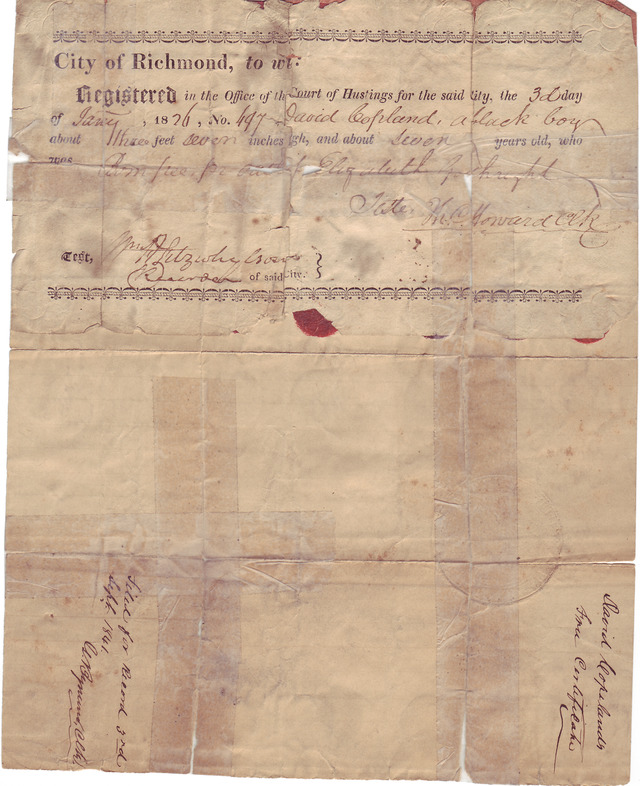 City of Richmond, to wit:
Registered in the Office of the Court of Hustings for the said City, the 3d day
of Jany, 1826, No. 497 David Copland, a black boy
about three feet seven inches high, and about seven years old, who
was Born free, per
Teste, Howard Clk
Test, Wm H Fitzwhylsonn
Recorder of said City. }
Filed for Record 3rd
Sept. 1841.
Clk
David Copeland's
Free Certificate